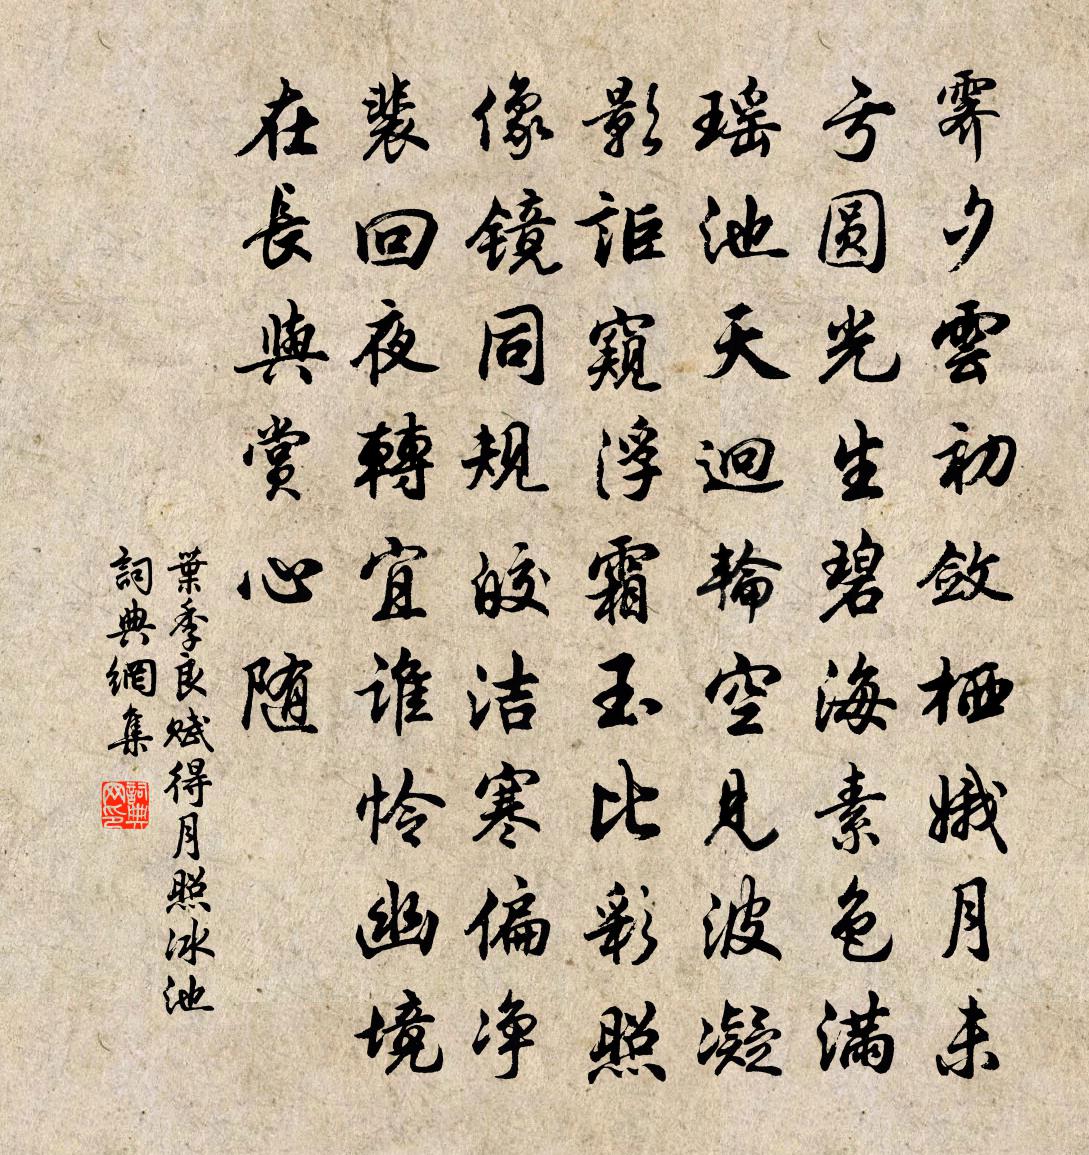 霽夕雲初斂栖娥月未
亏圆光生碧海素色滿
瑶池天迥輪空見波凝
影詎窺浮霜玉比彩照
像镜同規皎洁寒偏净
裴回夜轉宜谁怜幽境
在長與賞心随
葉季良赋得月照冰池
詞典網集
詞典网印